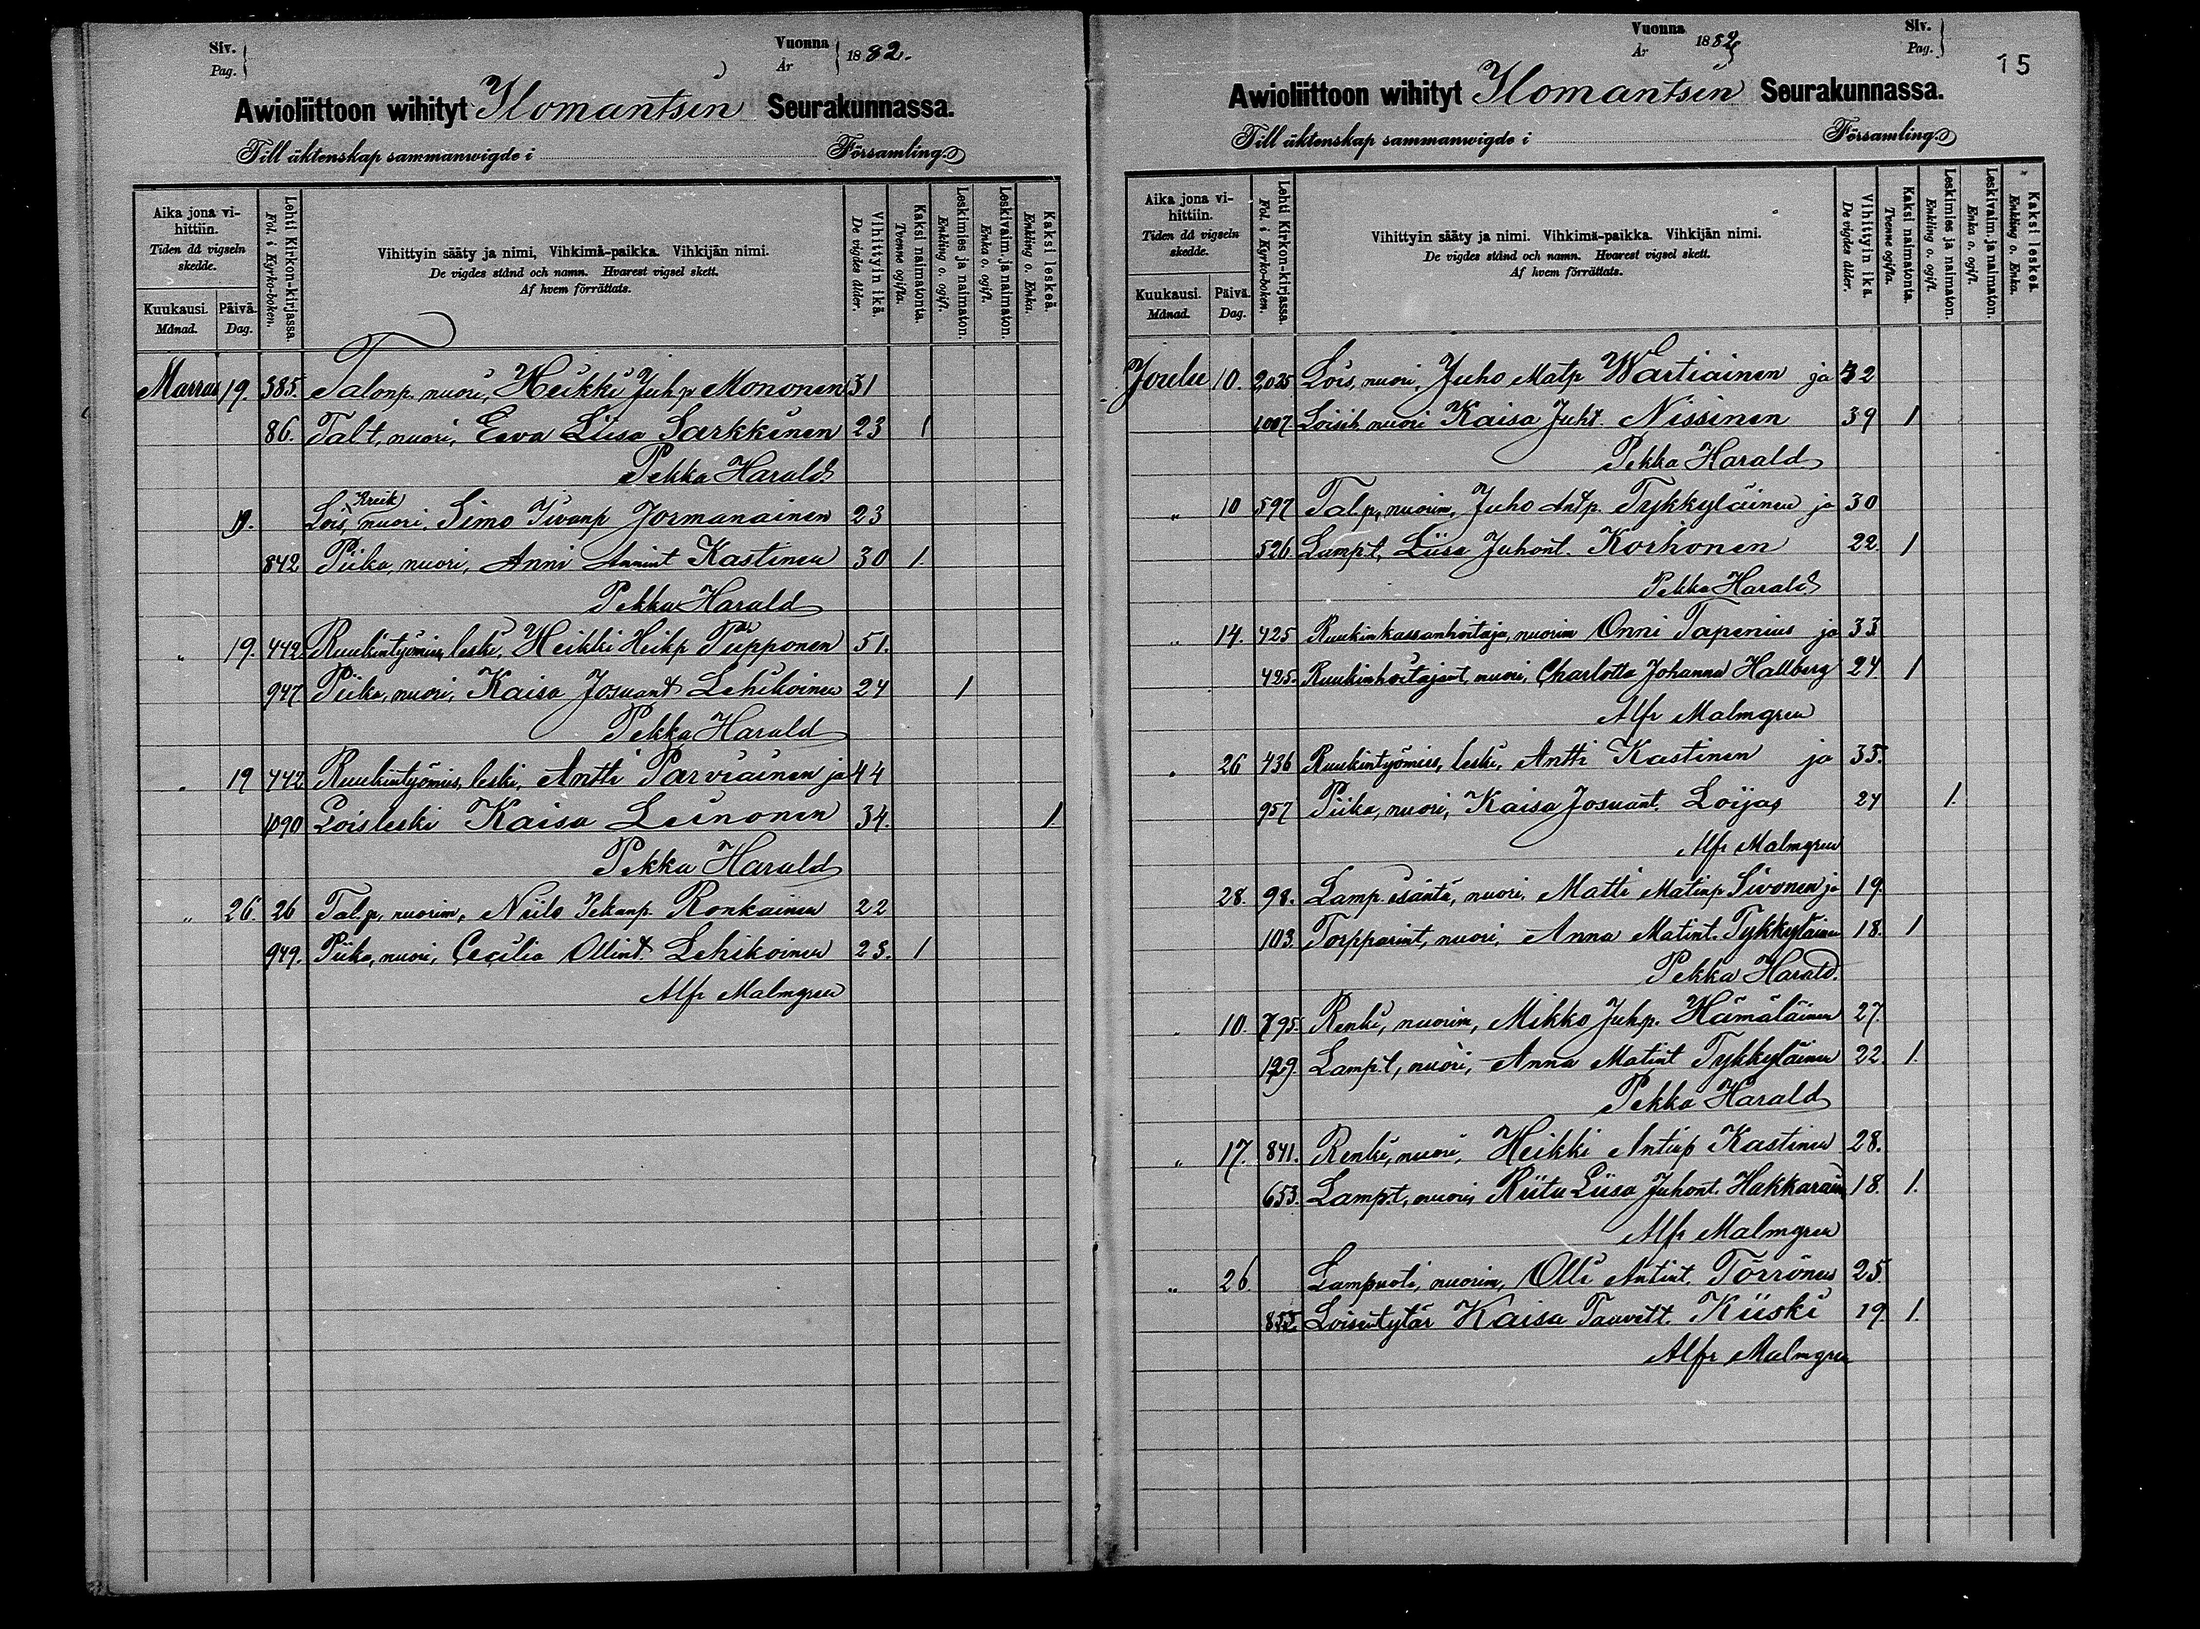 Siv.
Pag.
Vuonna
År
1882.
Awioliittoon wihityt Ilomantsin Seurakunnassa.
Till äktenskap sammanwigde i Församling.
Aika jona vi-
hittiin.
Tiden då vigseln
skedde.
Kuukausi.
Månad.
Päivä.
Dag.
Lehti Kirkon-kirjassa.
Fol. i Kyrko-boken.
Vihittyin sääty ja nimi, Vihkimä-paikka. Vihkijän nimi.
De vigdes stånd och namn. Hvarest vigsel skett.
Af hvem förrättats.
Vihittyin ikä.
De vigdes ålder.
Kaksi naimatonta.
Tvenne ogifta.
Leskimies ja naimaton.
Enkling o. ogift.
Leskivaim. ja naimaton.
Enka o. ogift.
Kaksi leskeä.
Enkling o. Enka.
Marras 19. 385. Talonp. nuori, Heikki Juhp Mononen 31
86. Tal t, nuori, Eeva Liisa Sarkkinen 23 1
Pekka Harald
19. Lois, Kreik nuori, Simo Iivanp Jormanainen 23
842 Piika, nuori, Anni Annint Kastinen 30 1.
Pekka Harald
" 19. 442 Ruukintyömies, leski, Heikki Heikp Piipponen 51.
947. Piika, nuori, Kaisa Josuant Lehikoinen 24 1
Pekka Harald
" 19 442 Ruukintyömies, leski, Antti Parviainen ja 44
1090 Loisleski Kaisa Leinonen 34. 1.
Pekka Harald
" 26. 26 Tal.p, nuorim, Niilo Pekanp. Ronkainen 22
949. Piika, nuori, Cecilia Ollint Lehikoinen 23. 1
Alfr Malmgren
Vuonna
År
1882
Siv.
Pag.
15
Awioliittoon wihityt Ilomantsin Seurakunnassa.
Till äktenskap sammanwigde i Församling.
Aika jona vi-
hittiin.
Tiden då vigseln
skedde.
Kuukausi.
Månad.
Päivä.
Dag.
Lehti Kirkon-kirjassa.
Fol. i Kyrko-boken.
Vihittyin sääty ja nimi. Vihkimä-paikka. Vihkijän nimi.
De vigdes stånd och namn. Hvarest vigsel skett.
Af hvem förrättats.
Vihittyin ikä.
De vigdes ålder.
Kaksi naimatonta.
Tvenne ogifta.
Leskimies ja naimaton.
Enkling o. ogift.
Leskivaim. ja naimaton.
Enka o. ogift.
Kaksi leskeä.
Enkling o. Enka.
Joulu 10. Lois, nuori, Juho Matp Wartiainen ja 32
1007 Loisit, nuori Kaisa Juht. Nissinen 39 1
Pekka Harald
" 10 597 Tal.p, nuorim, Juho Antp. Tykkyläinen ja 30
526. Lamp.t, Liisa Juhont. Korhonen 22. 1
Pekka Harald
" 14. 425 Ruukinkassanhoitaja, nuorim Onni Tapenius ja 33
425. Ruukinhoitajant, nuori, Charlotta Johanna Hallberg 24 1
Alfr Malmgren
" 26 436 Ruukintyömies, leski, Antti Kastinen ja 35.
957 Piika, nuori, Kaisa Josuant. Loijas 24 1.
Alfr Malmgren
28. 98. Lamp. isäntä, nuori, Matti Matinp Sivonen ja 19.
103. Torpparint, nuori, Anna Matint. Tykkyläinen 18. 1
Pekka Harald.
" 10. 795. Renki, nuorim, Mikko Juhp. Hämäläinen 27.
129. Lamp.t, nuori, Anna Matint Tykkyläinen 22. 1.
Pekka Harald
" 17. 841. Renki, nuori, Heikki Antinp Kastinen 28.
653. Lamp.t, nuori, Riitu Liisa Juhont. Hakkarain 18. 1.
Alfr Malmgren
" 26. Lampuoti, nuorim, Olli Antint. Törrönen 25.
855. Loisentytär Kaisa Taavett. Kiiski 19. 1.
Alfr Malmgren